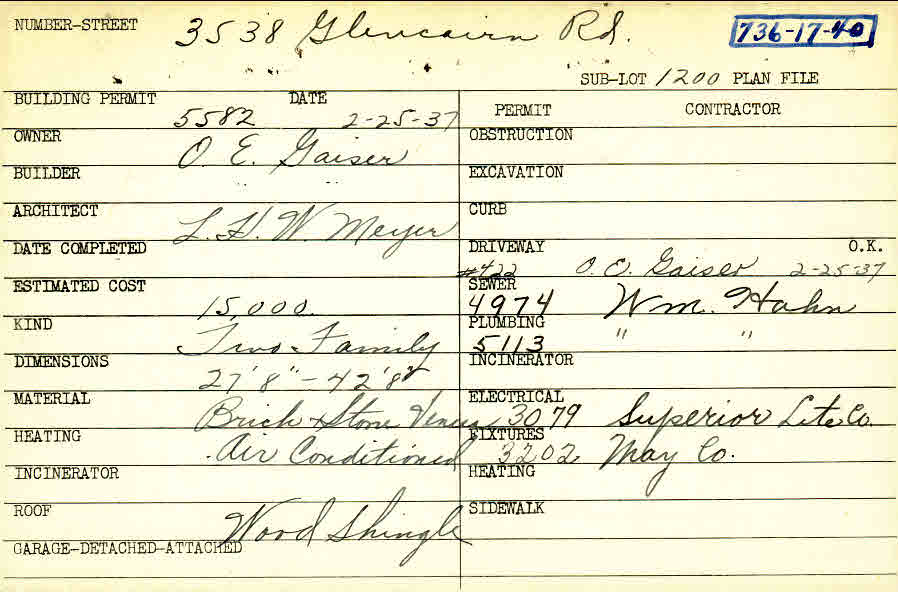 NUMBER-STREET 3538 Glencairn Rd. 736-17-40
SUB-LOT 1200 PLAN FILE
BUILDING PERMIT 5582 DATE 2-25-37
PERMIT CONTRACTOR
OWNER O. E. Gaiser
OBSTRUCTION
BUILDER
EXCAVATION
ARCHITECT L. H. W. Meyer
CURB
DATE COMPLETED
DRIVEWAY O.K.
#422 O. E. Gaiser 2-25-37
ESTIMATED COST 15,000.
SEWER
4974 Wm. Hahn
KIND Two-Family
PLUMBING
5113 " "
DIMENSIONS 27'8"-42'8"
INCINERATOR
MATERIAL Brick & Stone Veneer
ELECTRICAL
3079 Superior Lite Co.
HEATING Air Conditioned
FIXTURES
3202 May Co.
INCINERATOR
HEATING
ROOF Wood Shingle
SIDEWALK
GARAGE-DETACHED-ATTACHED